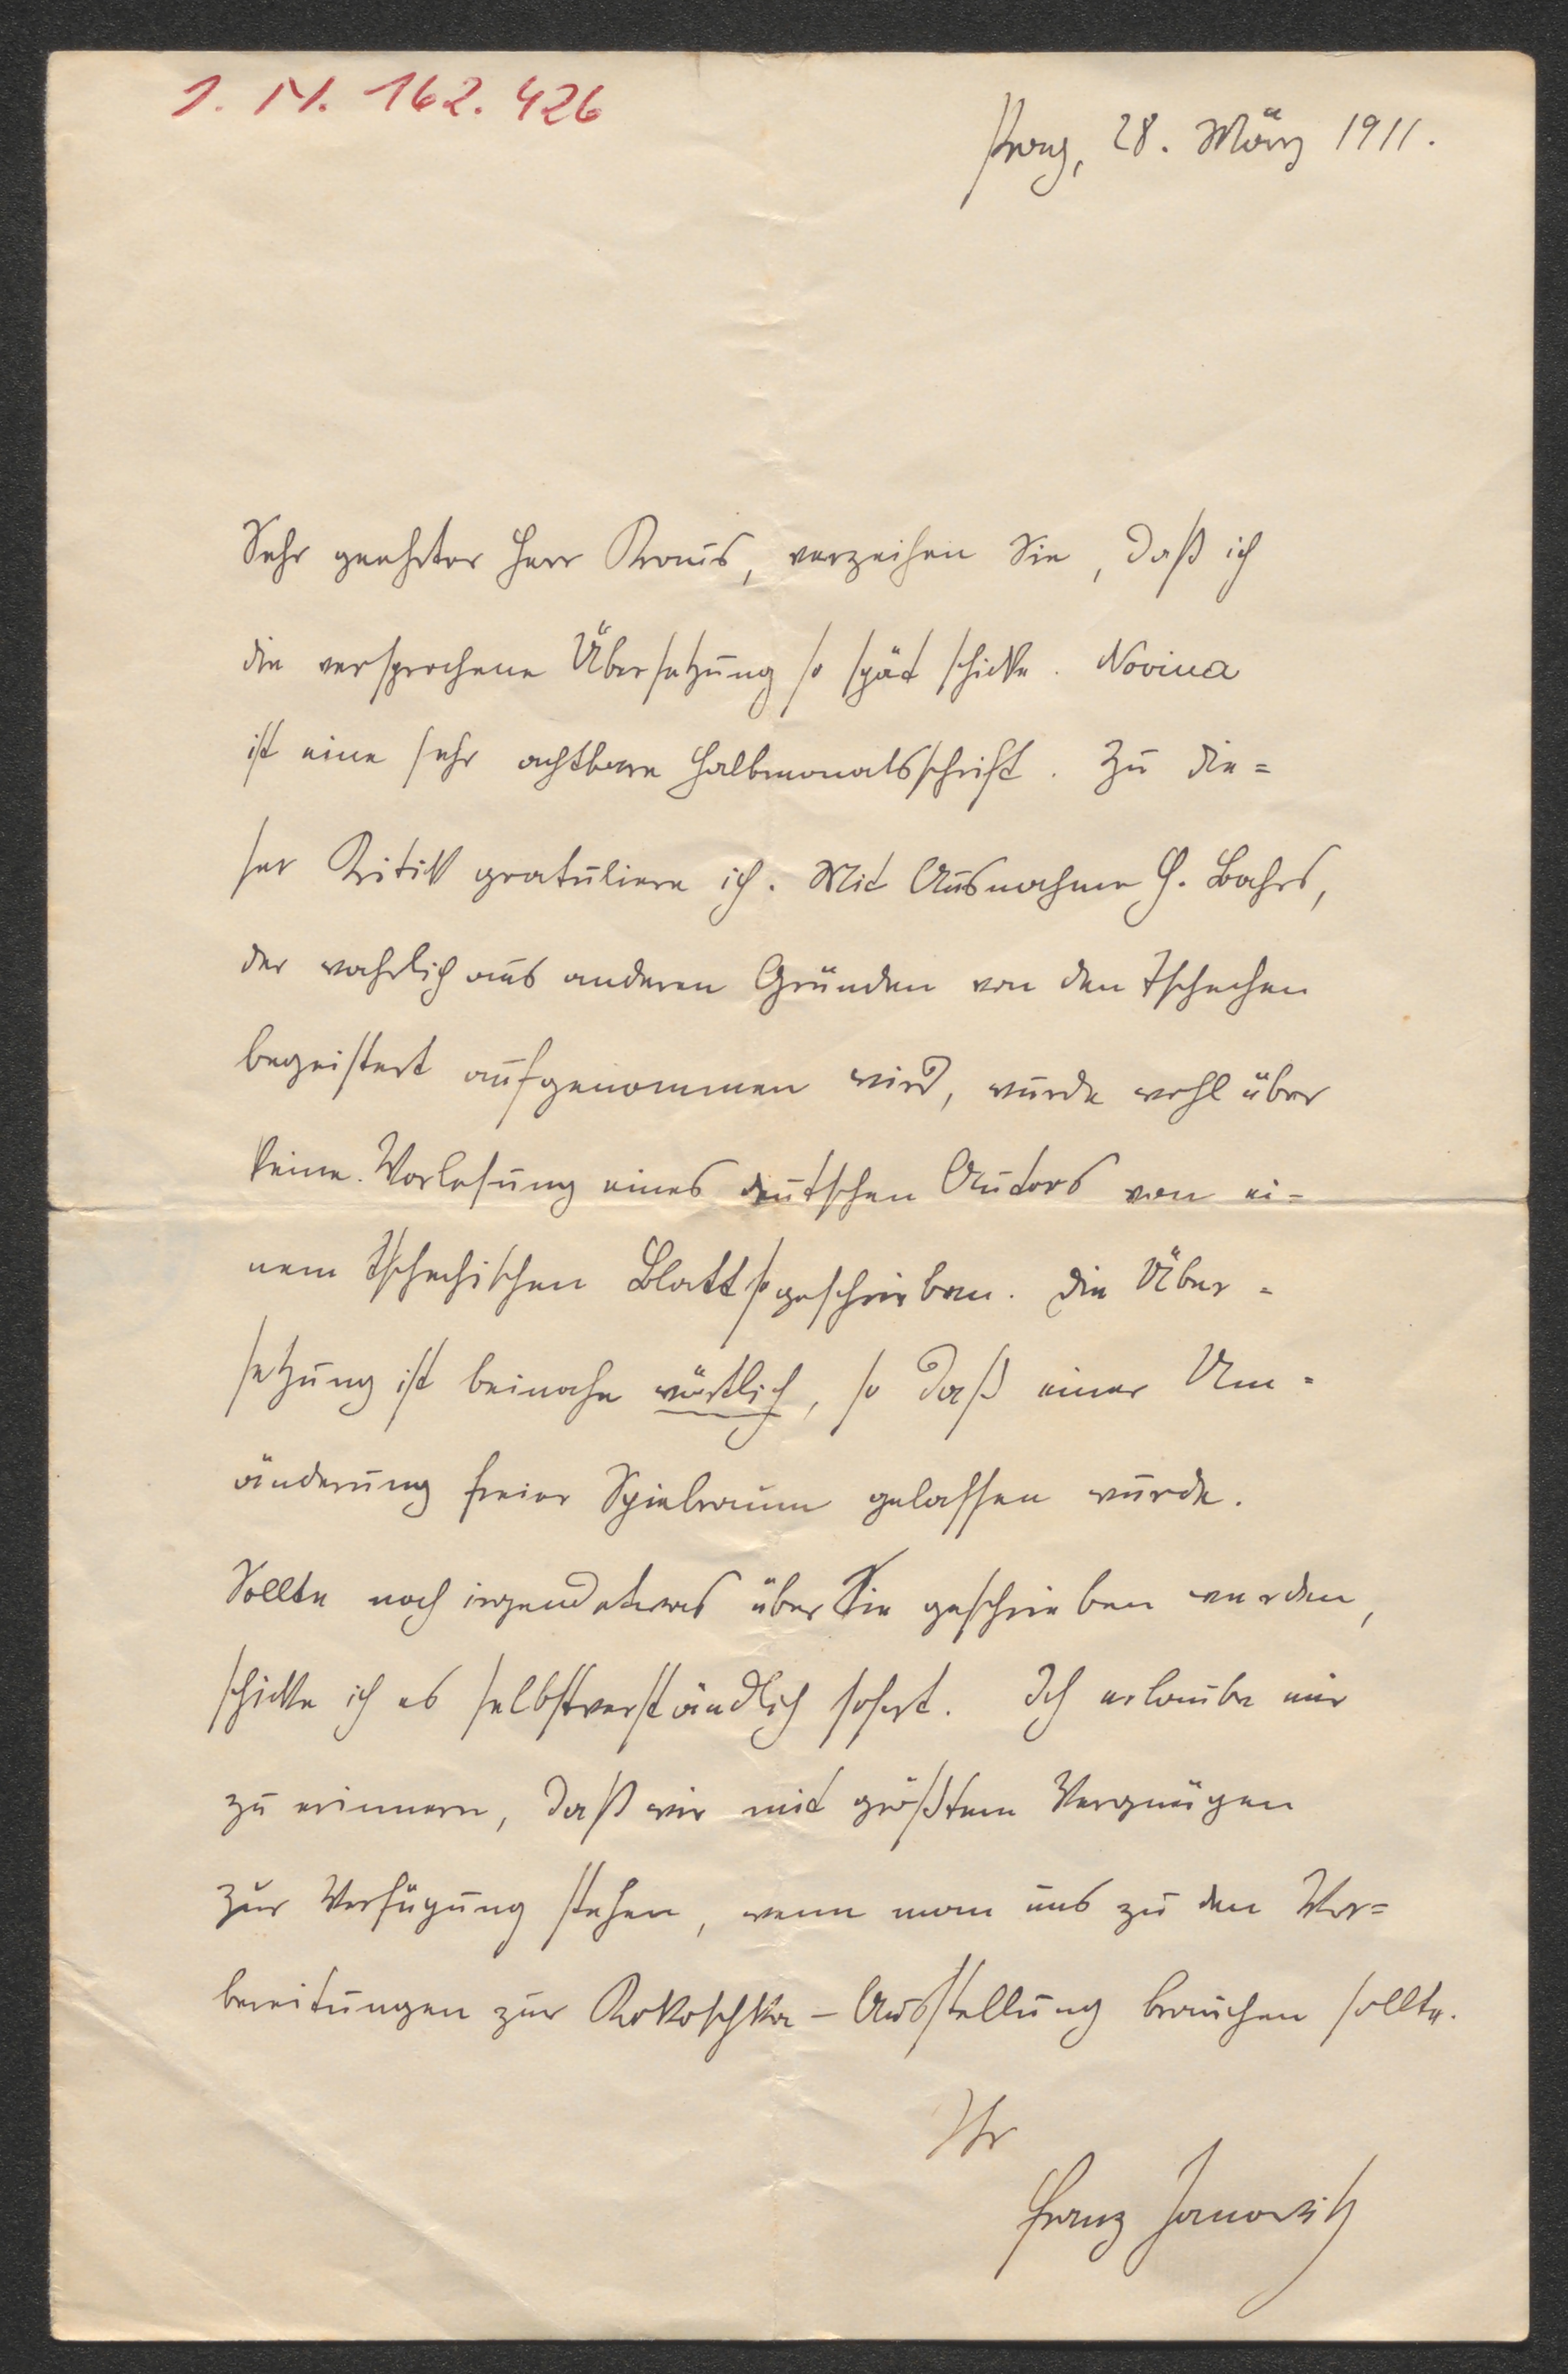 I. N. 162.426
Prag, 28. März 1911.
Sehr geehrter Herr Kraus, verzeihen Sie, daß ich
die versprochene Übersetzung so spät schicke. Novina
ist eine sehr achtbare Halbmonatsschrift. Zu die=
ser Kritik gratuliere ich. Mit Ausnahme H. Bahrs,
der wahrlich aus anderen Gründen von den Tschechen
begeistert aufgenommen wird, wurde wohl über
keine Vorlesung eines deutschen Autors von ei-
nem tschechischen Blatt so geschrieben. Die Über=
setzung ist beinahe wörtlich, so daß einer Um=
änderung freier Spielraum gelassen wurde.
Sollte noch irgendetwas über Sie geschrieben werden,
schicke ich es selbstverständlich sofort. Ich erlaube mir
zu erinnern, daß wir mit größtem Vergnügen
zur Verfügung stehen, wenn man uns zu den Vor=
bereitungen zur Kokoschka-Ausstellung brauchen sollte.
Ihr
Franz Janowitz